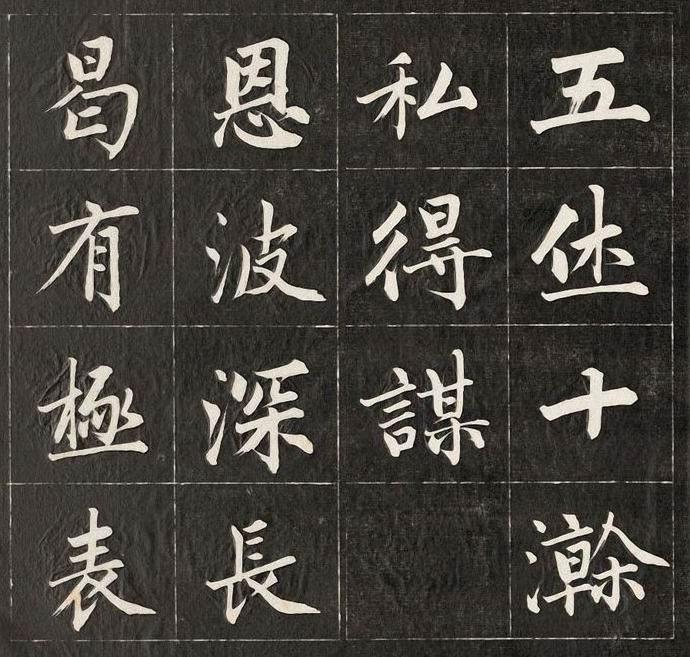 五休十澣
私得謀
恩波深長
曷有極表